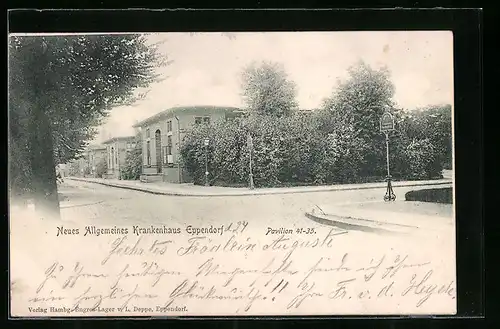 Neues Allgemeines Krankenhaus Eppendorf
Pavilion 41-35.
Fräulein Auguste
Zu Ihrem heutigen Wiegenfeste sende ich Ihnen
meinen herzlichsten Glückwunsch!! Ihr Fr. v. d. Heyde.
Verlag Hambg. Engros-Lager v/ L. Deppe, Eppendorf.